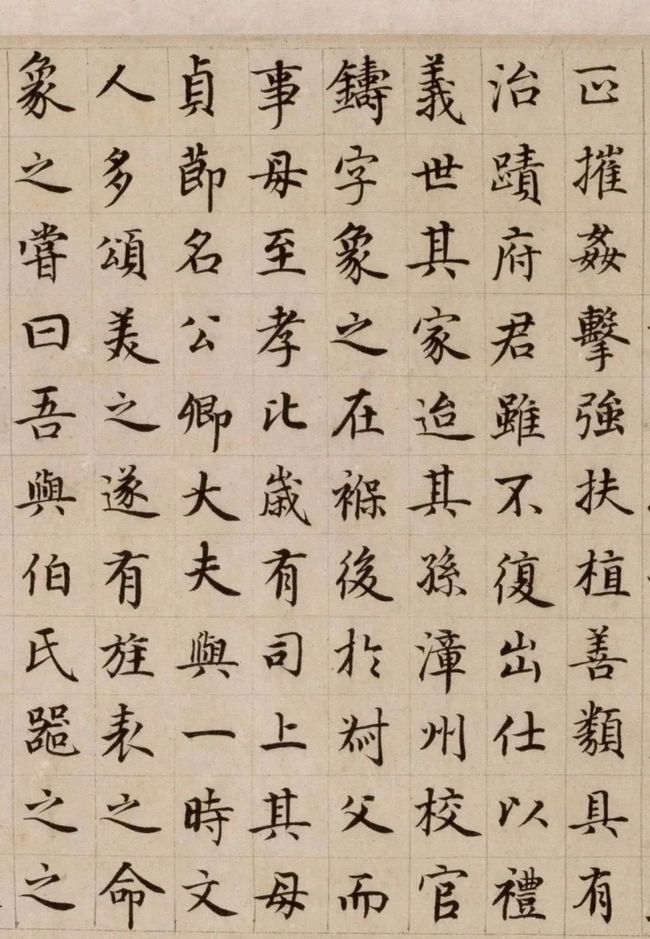 正摧姦擊強扶植善類具有
治蹟府君雖不復出仕以禮
義世其家迨其孫漳州校官
鑄字象之在褓後於叔父而
事母至孝比歲有司上其母
貞節名公卿大夫與一時文
人多頌美之遂有旌表之命
象之嘗曰吾與伯氏器之之